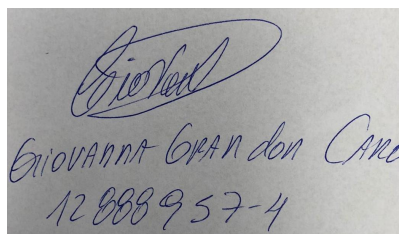 Giovanna
Giovanna Grandon Caro
12888957-4